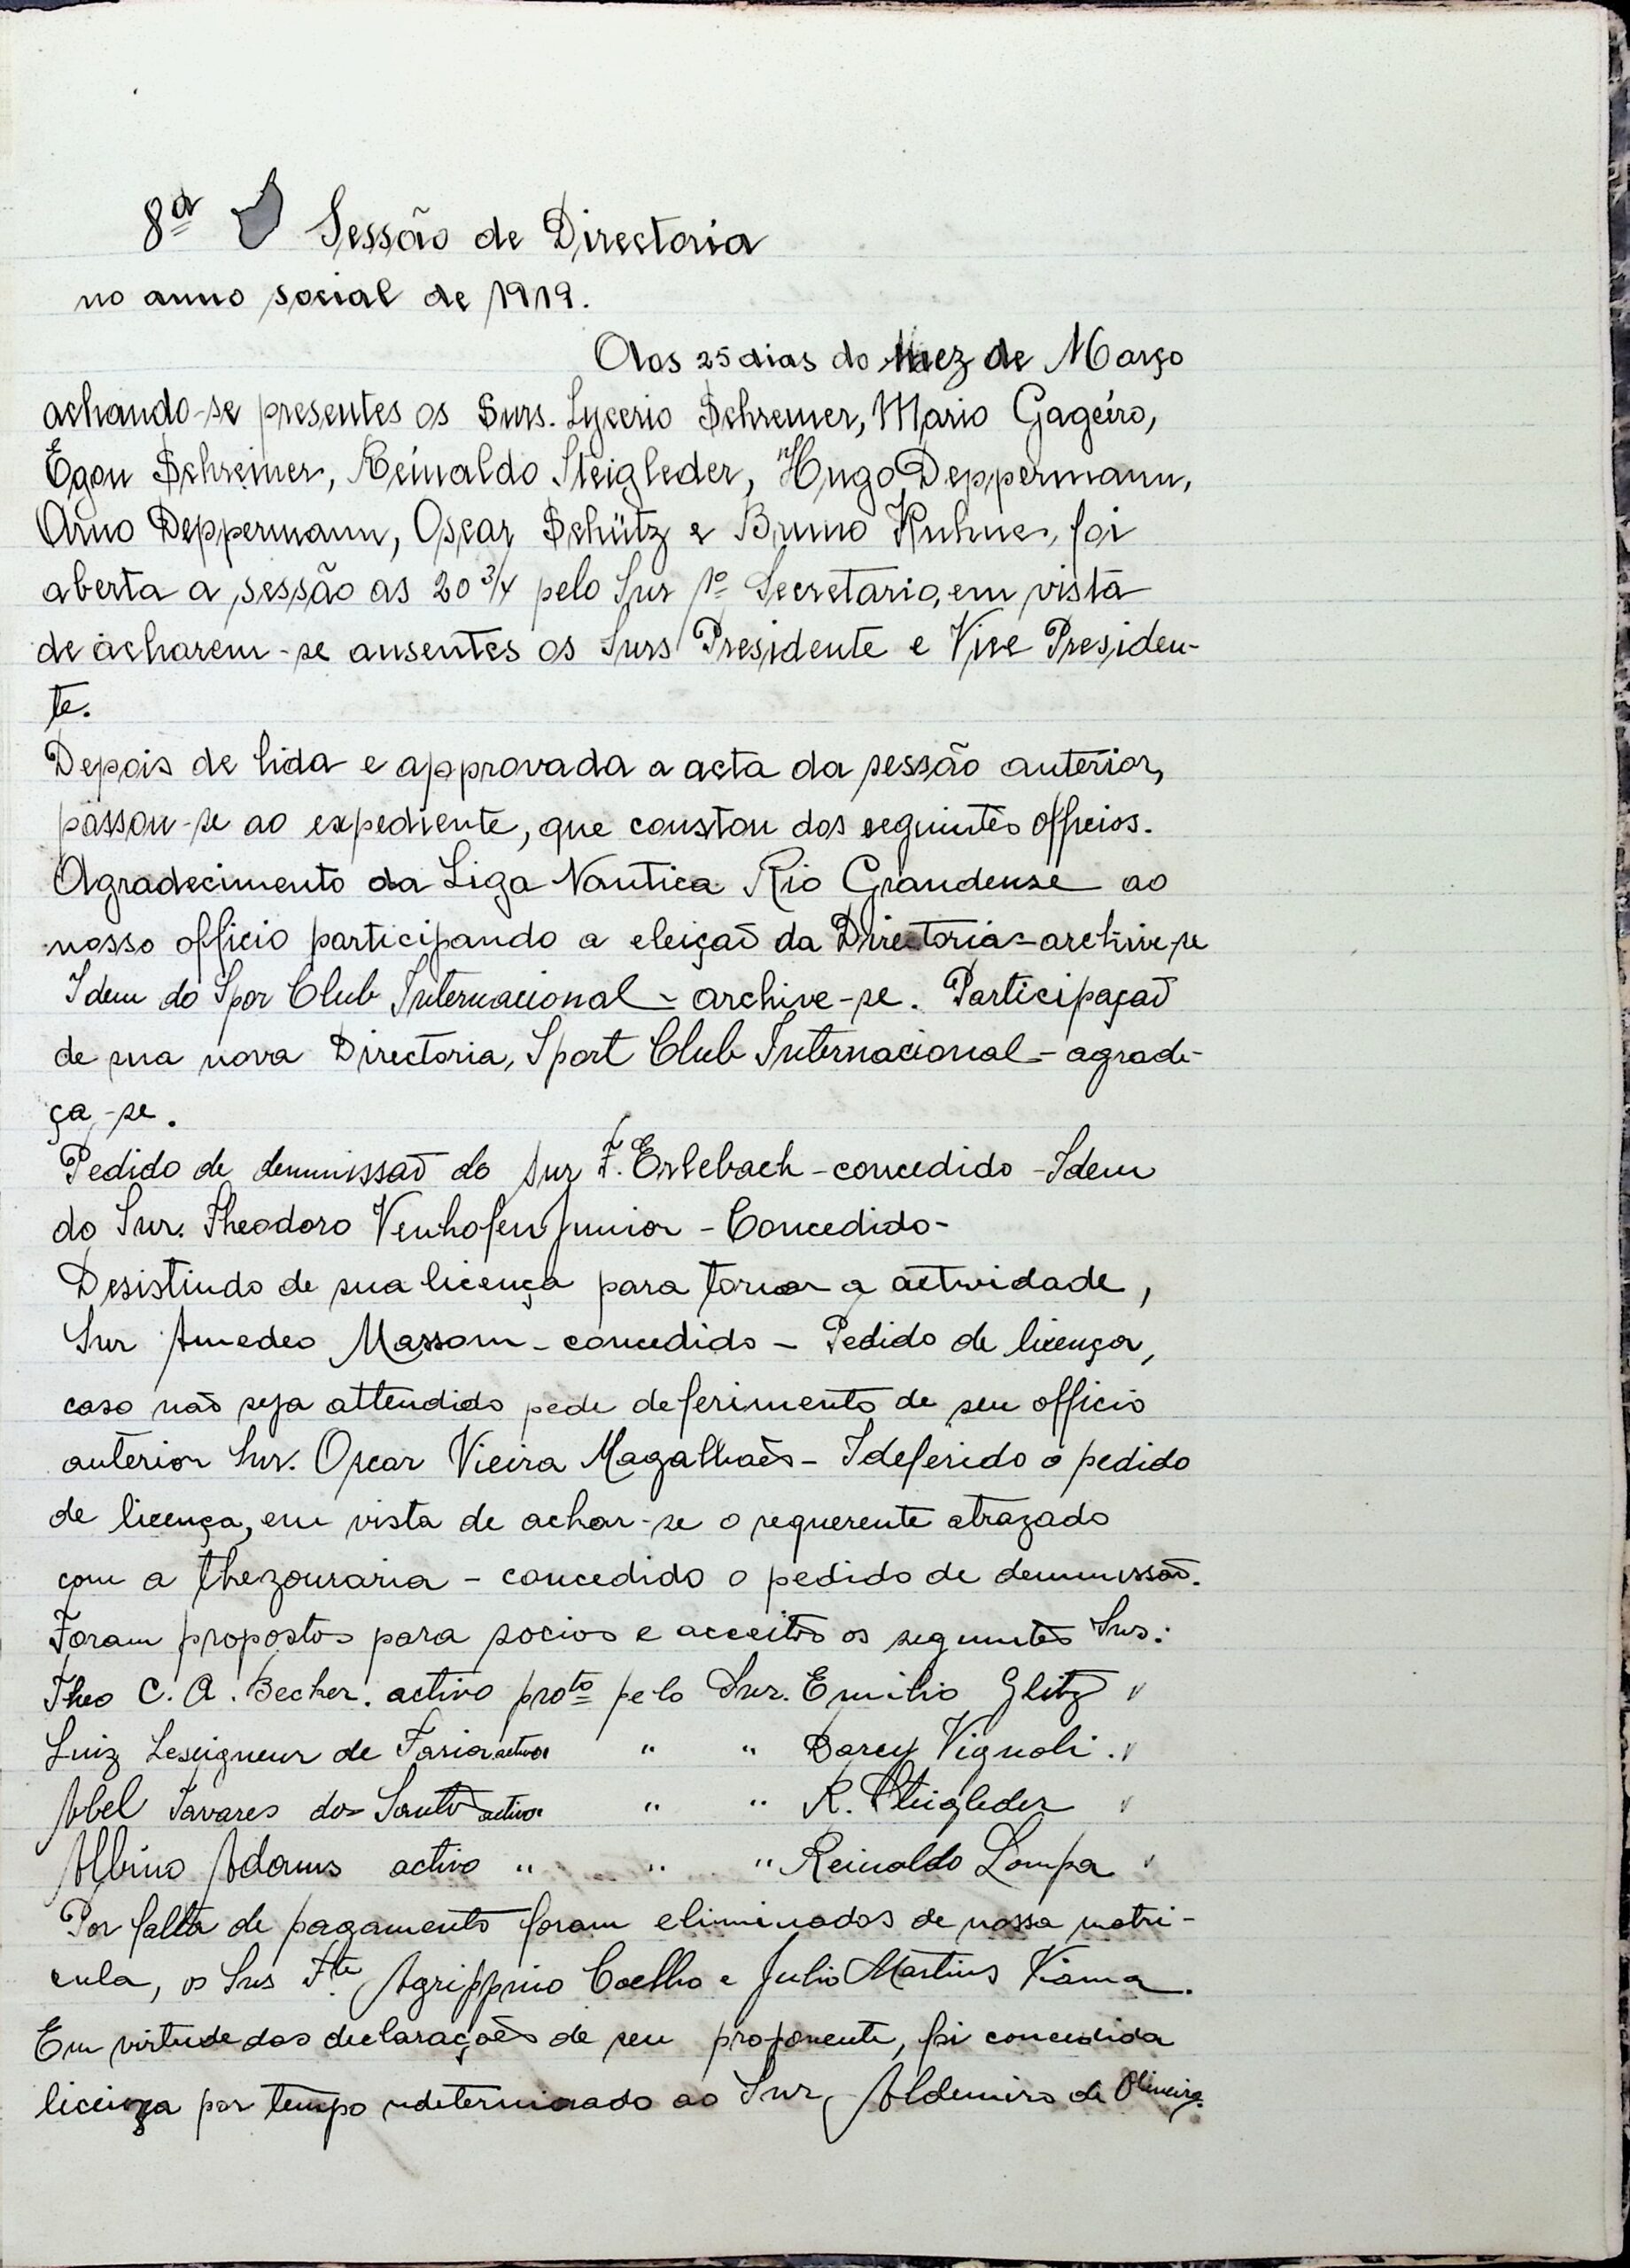 8ª Sessão de Directoria
no anno social de 1919.
Aos 25 dias do mez de Março
achando-se presentes os Snrs. Lycerio Schreiner, Mario Gageiro,
Egon Schreiner, Reinaldo Steigleder, Hugo Deppermann,
Arno Deppermann, Oscar Schütz e Bruno Kuhne, foi
aberta a sessão as 20 3/4 pelo Snr 1º Secretario, em vista
de acharem-se ausentes os Snrs Presidente e Vice Presiden-
te.
Depois de lida e approvada a acta da sessão anterior,
passou-se ao expediente, que constou dos seguintes officios.
Agradecimento da Liga Nautica Rio Grandense ao
nosso officio participando a eleição da Directoria - archive-se
Idem do Spor Club Internacional - archive-se. Participação
de sua nova Directoria, Sport Club Internacional - agrade-
ça-se.
Pedido de demmissão do Snr F. Erlebach - concedido - Idem
do Snr. Theodoro Venhofen Junior - Concedido -
Desistindo de sua licença para tornar a actividade,
Snr Amedeo Massom - concedido - Pedido de licença,
caso não seja attendido pede deferimento de seu officio
anterior Snr. Oscar Vieira Magalhaẽs - Ideferido o pedido
de licença, em vista de achar-se o requerente atrazado
com a thezouraria - concedido o pedido de demmissão.
Foram propostos para socios e acceitos os seguintes Snrs:
Theo C. A. Becker. activo proto pelo Snr. Emilio Glitz v
Luiz Leseigneur de Faria activo " " Darcy Vignoli. v
Abel Tavares dos Santos activo " " R. Steigleder v
Albino Adams activo " " " Reinaldo Lompa v
Por falta de pagamento foram eliminados de nossa matri-
cula, os Snrs Fte Agrippino Coelho e Julio Martins Vianna.
Em virtude das declarações de seu proponente, foi concedida
licença por tempo indeterminado ao Snr Aldemiro de Oliveira.